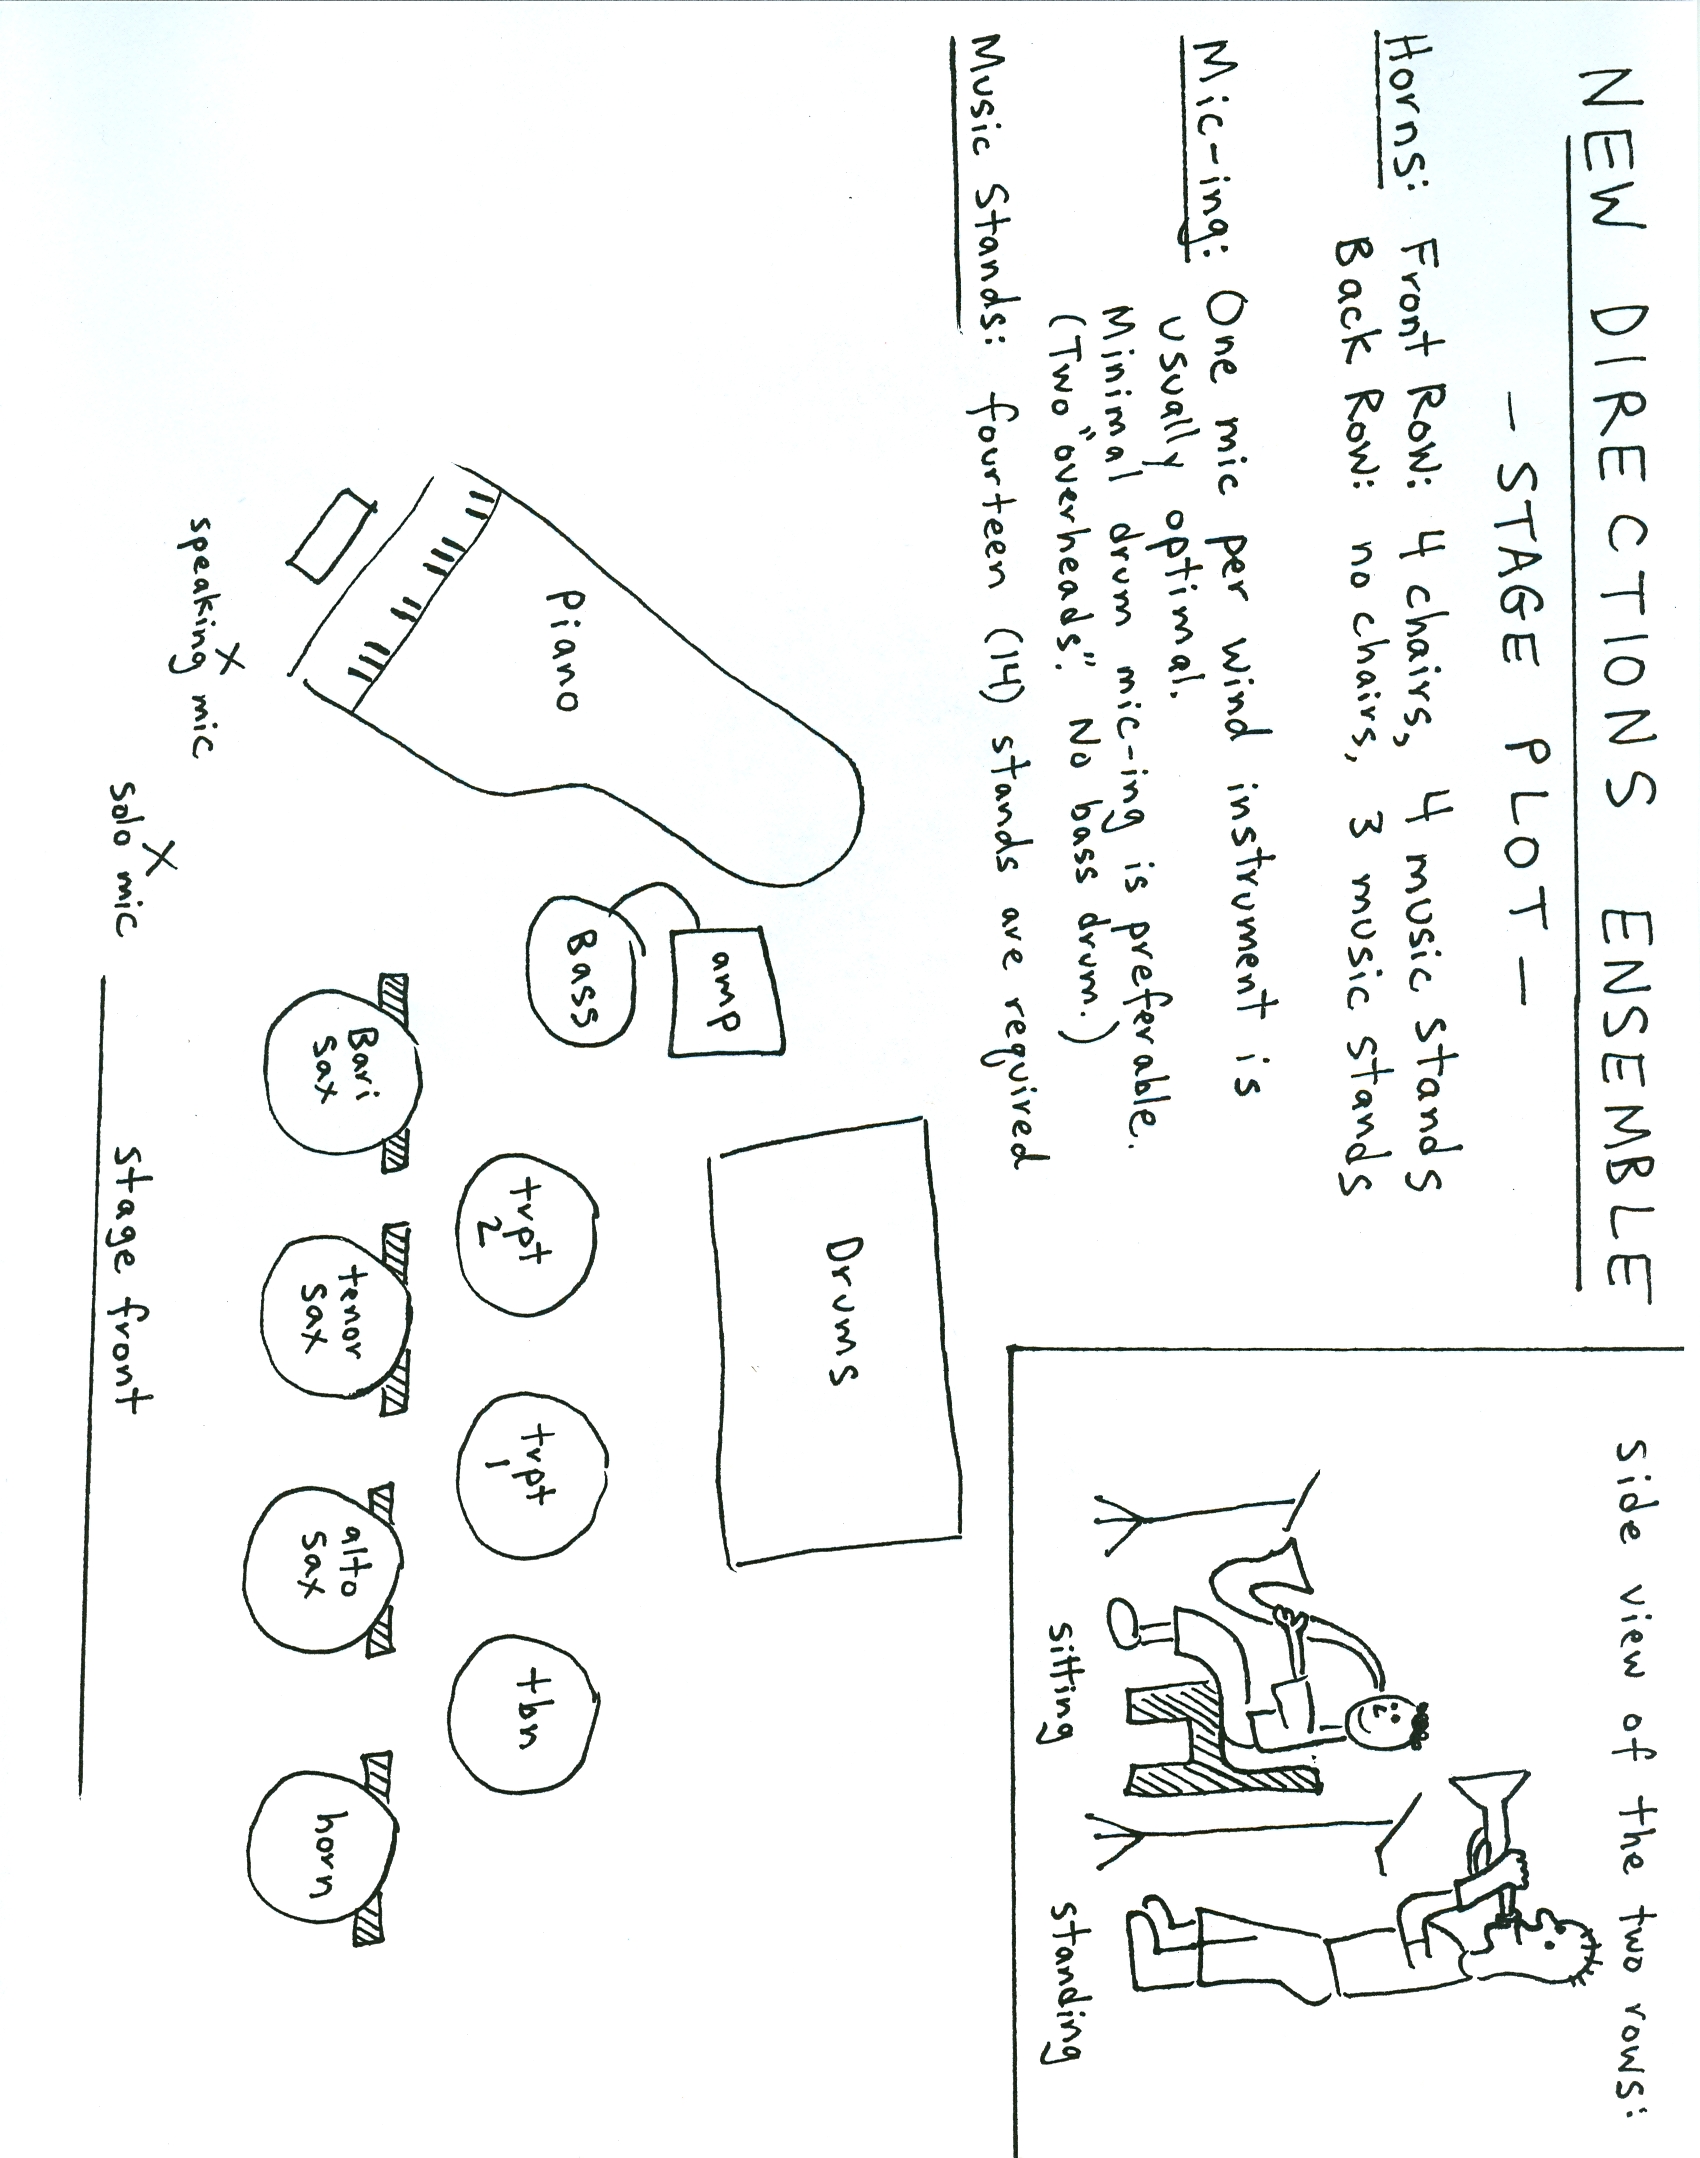 NEW DIRECTIONS ENSEMBLE
- STAGE PLOT -
Horns: Front Row: 4 chairs, 4 music stands
Back Row: no chairs, 3 music stands
Mic-ing: One mic per wind instrument is
usually optimal.
Minimal drum mic-ing is preferable.
(Two "overheads". No bass drum.)
Music Stands: fourteen (14) stands are required
Side view of the two rows:
sitting
standing
Piano
amp
Bass
Drums
trpt
2
trpt
1
tbn
Bari
Sax
tenor
Sax
alto
Sax
horn
X
speaking mic
X
Solo mic
Stage front